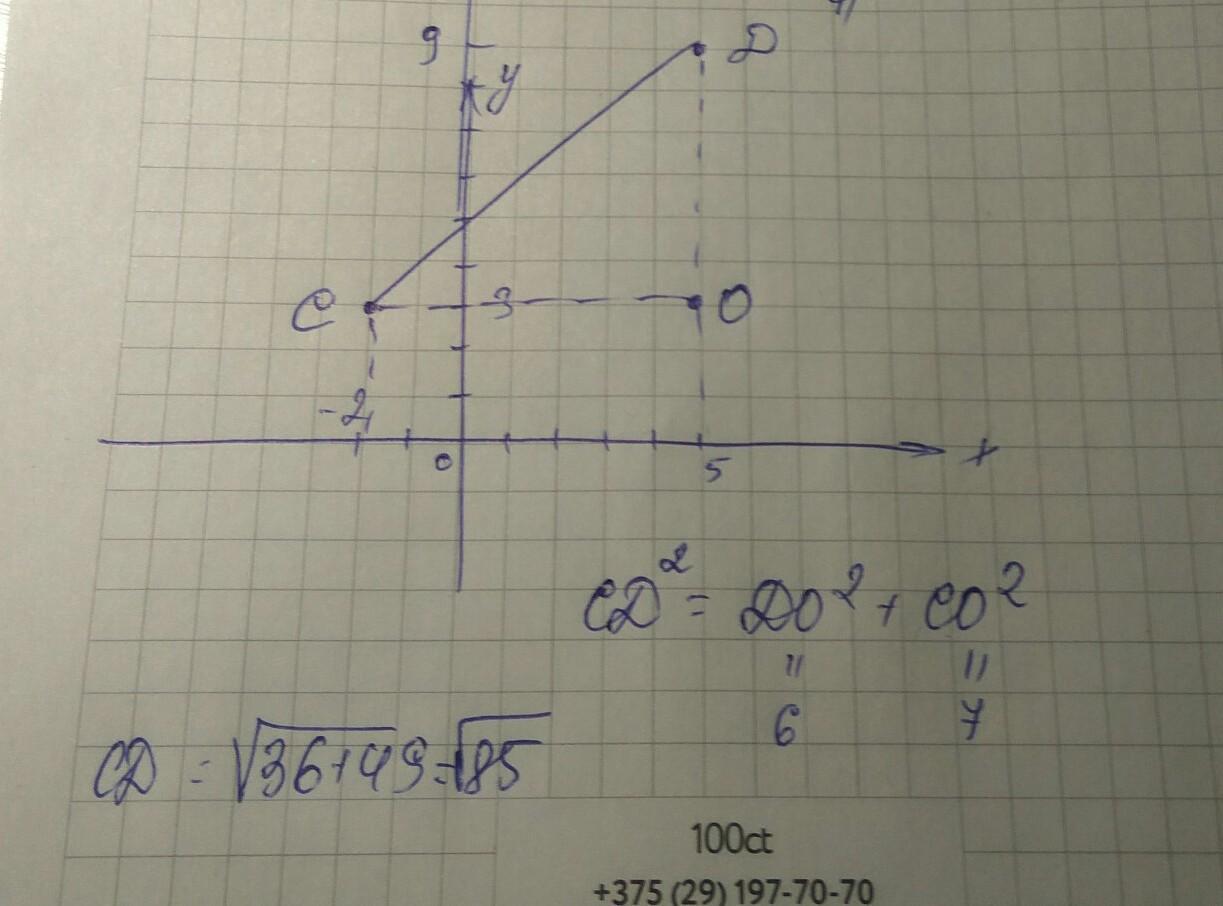 9
D
y
C
3
O
-2
0
5
x
CD² = DO² + CO²
"
"
6
7
CD = √36+49=√85
100ct
+375 (29) 197-70-70